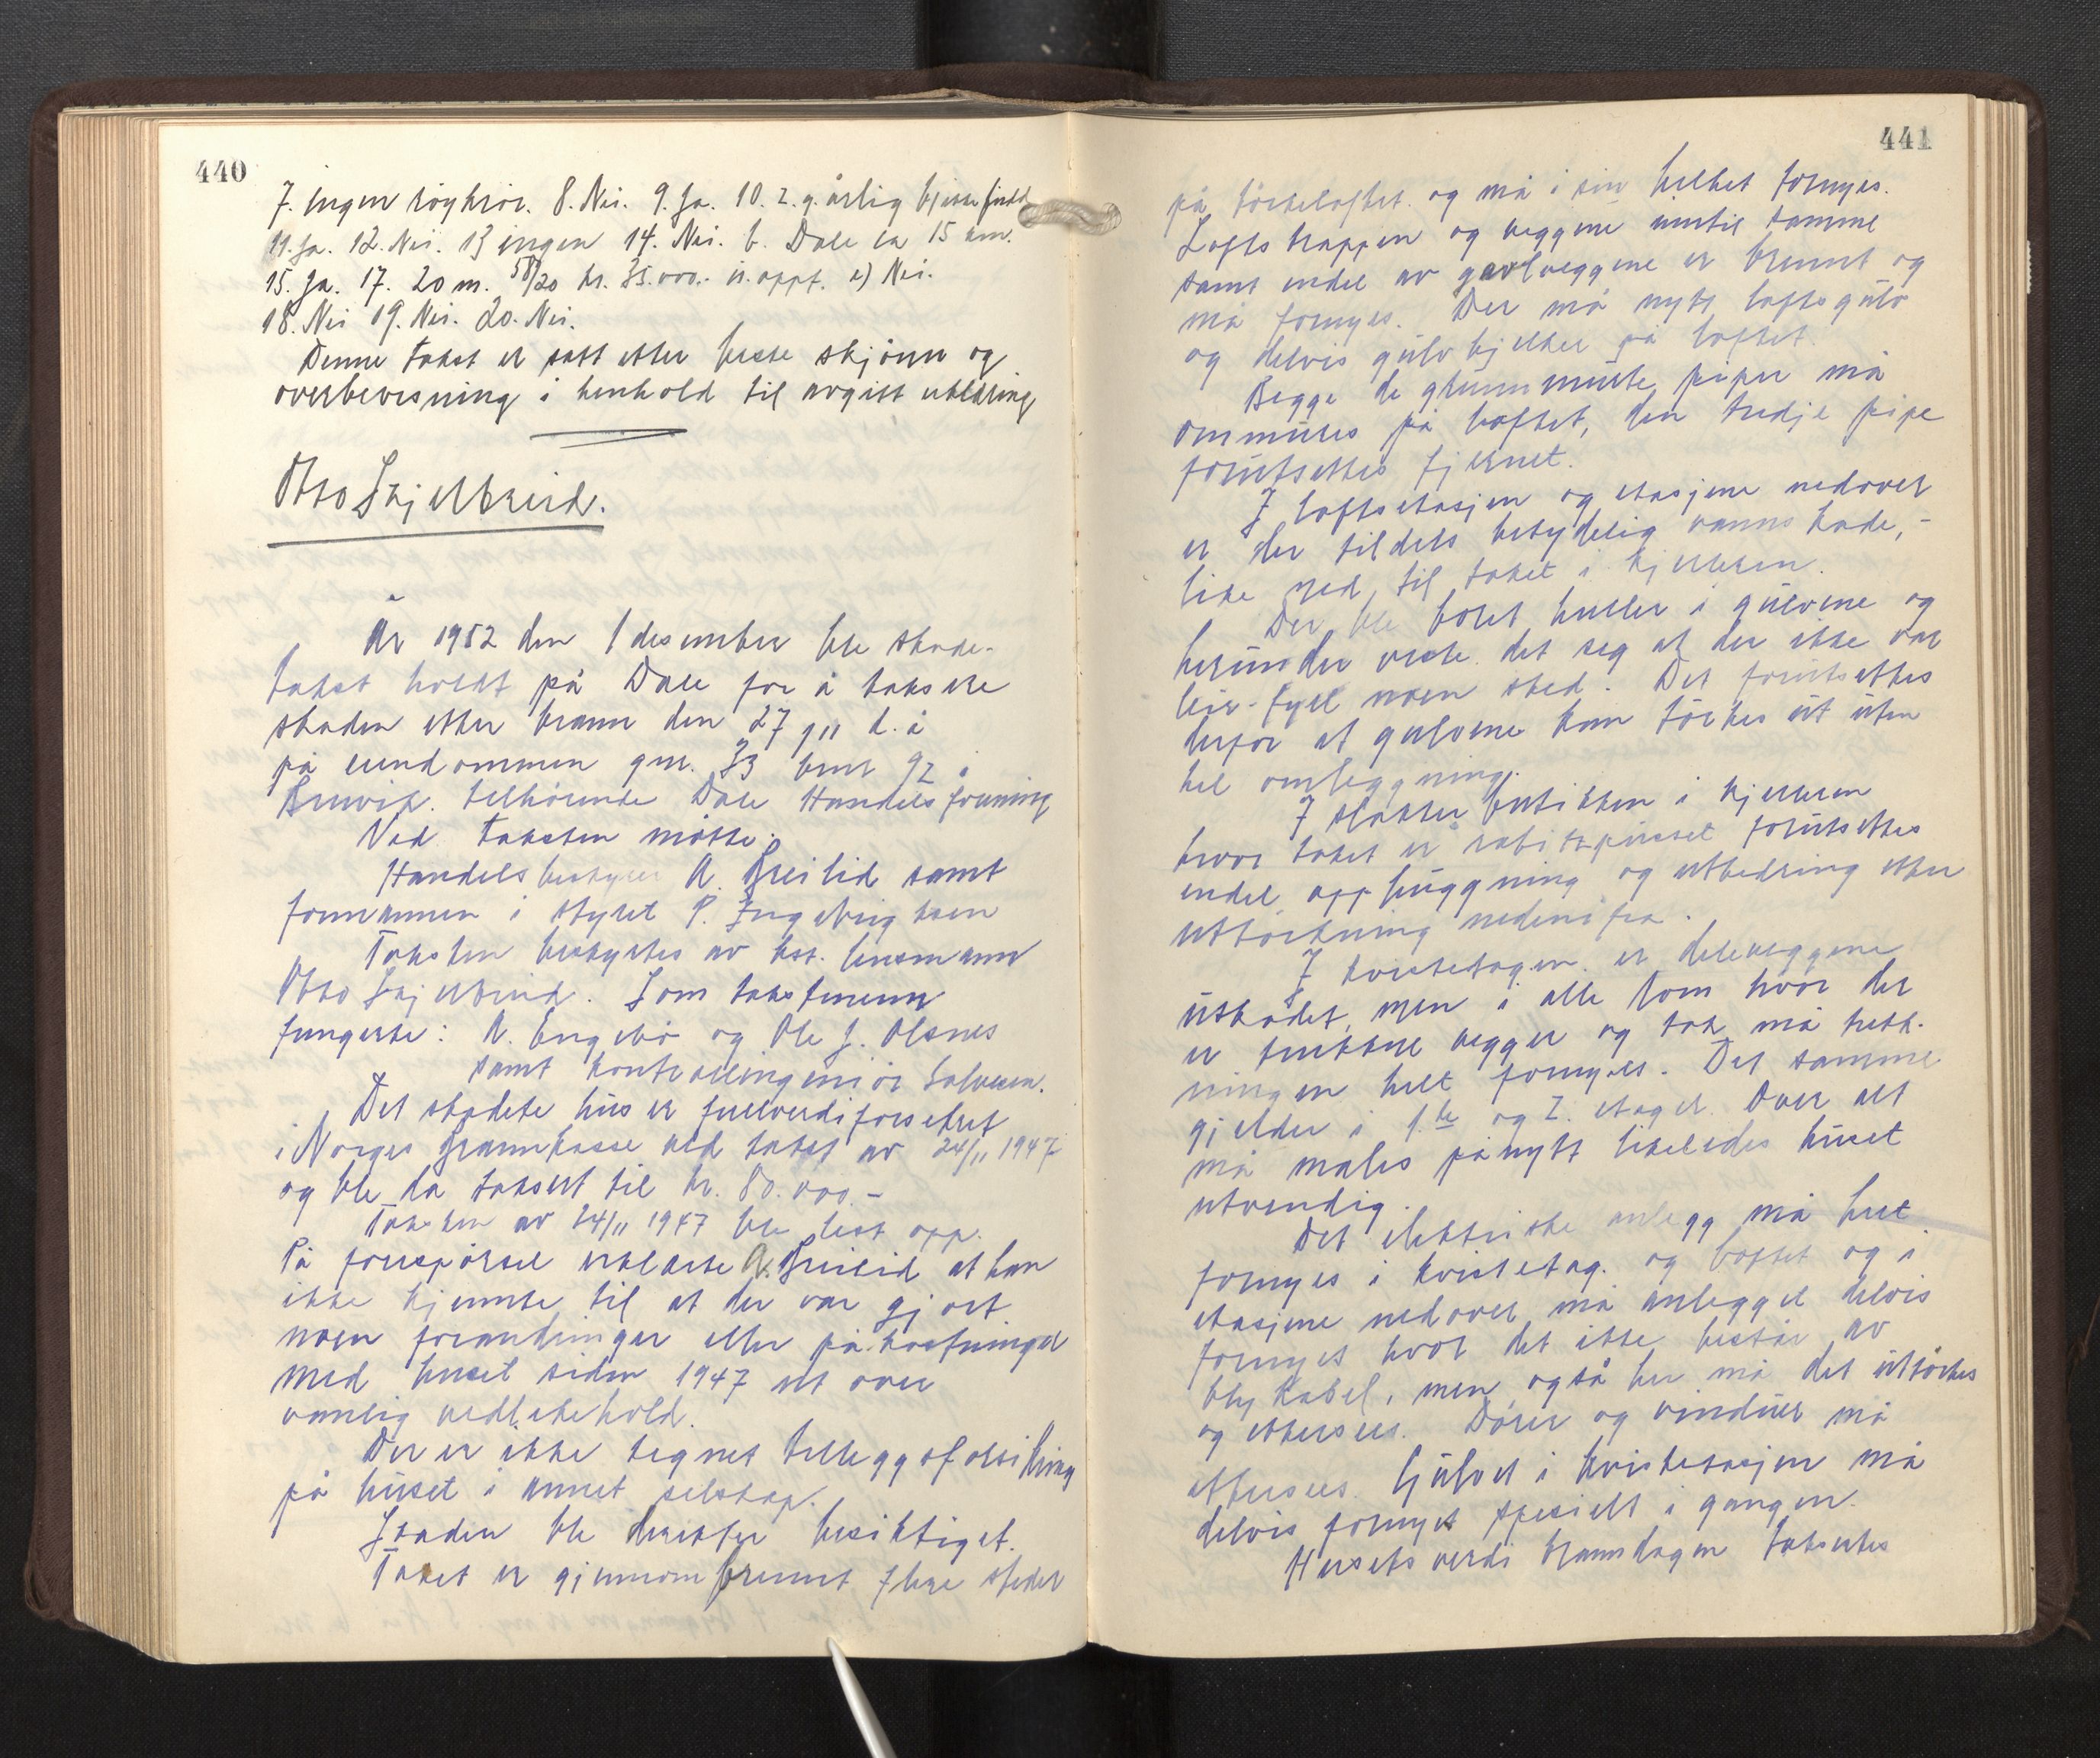 440
7. ingen röykrör. 8. Nei. 9. Ja. 10. 2. g. årlig
11. Ja. 12. Nei. 13 ingen 14. Nei. b. Dale ca 15 km.
15. Ja. 17. 20 m. 58/20 kr. 35.000.- n. oppf. e) Nei.
18. Nei 19. Nei. 20. Nei.
Denne takst er satt etter beste skjönn og
overbevisning i henhold til avgitt erklæring
Otto Skjelbreid.
År 1952 den 1 desember ble skade-
takst holdt på Dale for å taksere
skaden etter brann den 27/11 d. å
på eiendommen gnr. 33 bnr 92 i
Bruvik. tilhörende Dale Handelsforening
Ved taksten mötte:
Handelsbestyrer A. Breilid samt
formannen i styret P. Ingebrigtsen
Taksten bestyrtes av kst. lensmann
Otto Skjelbreid. Som takstmenn
fungerte: A. Engebö og Ole J. Olsnes
samt kontrollingeniör Salvesen.
Det skadete hus er fullverdiforsikret
i Norges Brannkasse ved takst av 24/11 1947
og ble da taksert til kr. 80.000.-
Taksten av 24/11 1947 ble lest opp.
På forespörsel erklærte A. Breilid at han
ikke kjennte til at der var gjort
noen forandringer eller påkostninger
med huset siden 1947 ut over
vanlig vedlikehold.
Der er ikke tegnet tilleggsforsikring
på huset i annet selskap.
Skaden ble deretter besiktiget.
Taket er gjennombrennt flere steder
441
på törkeloftet og må i sin helhet fornyes.
Loftstrappen og veggene inntil samme
samt endel av gavlveggene er brennt og
må fornyes. Der må nytt loftsgulv
og delvis gulvbjelker på loftet.
Begge de grunnmurte piper må
ommures på loftet, den tredje pipe
forutsettes fjernet.
I loftsetasjen og etasjene nedover
er der tildels betydelig vannskade, -
like ned til taket i kjelleren.
Der ble boret huller i gulvene og
herunder viste det seg at der ikke var
leir-fyll noen sted. Det forutsettes
derfor at gulvene kan törkes ut uten
hel omleggning.
I slakterbutikken i kjelleren
hvor taket er rabitzpusset forutsettes
endel opphuggning og utbedring etter
uttörkning nedenifra.
I kvistetagen er deleveggene
uskadet, men i alle rom hvor der
er trukkne vegger og tak må trekk-
ningen helt fornyes. Det samme
gjelder i 1.ste og 2. etager. Over alt
må males pånytt likeledes huset
utvendig.
Det elektriske anlegg må helt
fornyes i kvistetag. og loftet og i
etasjene nedover må anlegget delvis
fornyes hvor det ikke består av
blykabel, men også her må det uttörkes
og etterses. Dörer og vinduer må
etterses. Gulvet i kvistetasjen må
delvis fornyes spesielt i gangen.
Husets verdi branndagen takseres